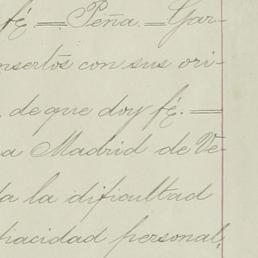 fé. = Peña. = Gar-
nsertos con sus ori-
de que doy fé. =
a Madrid de Ve-
da la dificultad
piacidad personal,